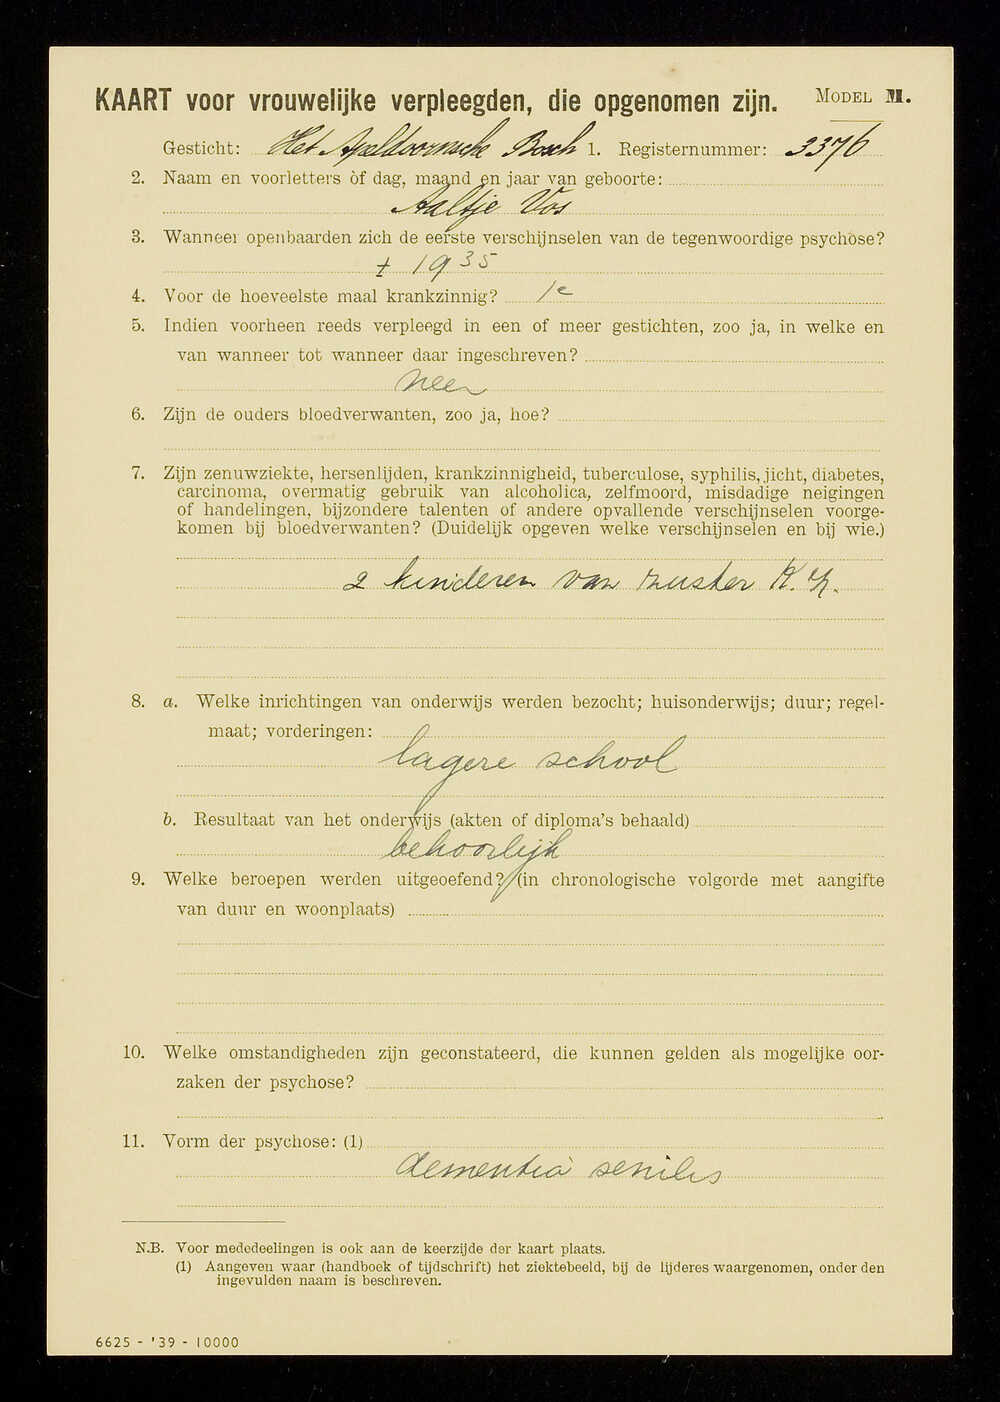 KAART voor vrouwelijke verpleegden, die opgenomen zijn. MODEL M.
Gesticht: Het Apeldoornsche Bosch 1. Registernummer: 3376
2. Naam en voorletters òf dag, maand en jaar van geboorte:
Aaltje Vos
3. Wanneer openbaarden zich de eerste verschijnselen van de tegenwoordige psychose?
± 1935
4. Voor de hoeveelste maal krankzinnig? 1e
5. Indien voorheen reeds verpleegd in een of meer gestichten, zoo ja, in welke en
van wanneer tot wanneer daar ingeschreven?
neen
6. Zijn de ouders bloedverwanten, zoo ja, hoe?
7. Zijn zenuwziekte, hersenlijden, krankzinnigheid, tuberculose, syphilis, jicht, diabetes,
carcinoma, overmatig gebruik van alcoholica, zelfmoord, misdadige neigingen
of handelingen, bijzondere talenten of andere opvallende verschijnselen voorge-
komen bij bloedverwanten? (Duidelijk opgeven welke verschijnselen en bij wie.)
2 kinderen van zuster K.Z.
8. a. Welke inrichtingen van onderwijs werden bezocht; huisonderwijs; duur; regel-
maat; vorderingen:
lagere school
b. Resultaat van het onderwijs (akten of diploma's behaald)
behoorlijk
9. Welke beroepen werden uitgeoefend? (in chronologische volgorde met aangifte
van duur en woonplaats)
10. Welke omstandigheden zijn geconstateerd, die kunnen gelden als mogelijke oor-
zaken der psychose?
11. Vorm der psychose: (1)
dementia senilis
N.B. Voor mededeelingen is ook aan de keerzijde der kaart plaats.
(1) Aangeven waar (handboek of tijdschrift) het ziektebeeld, bij de lijderes waargenomen, onder den
ingevulden naam is beschreven.
6625 - '39 - 10000